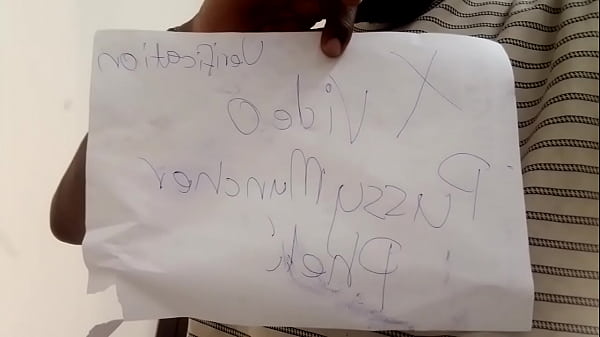 Verification
X Video
Pussy Muncher
Pheli